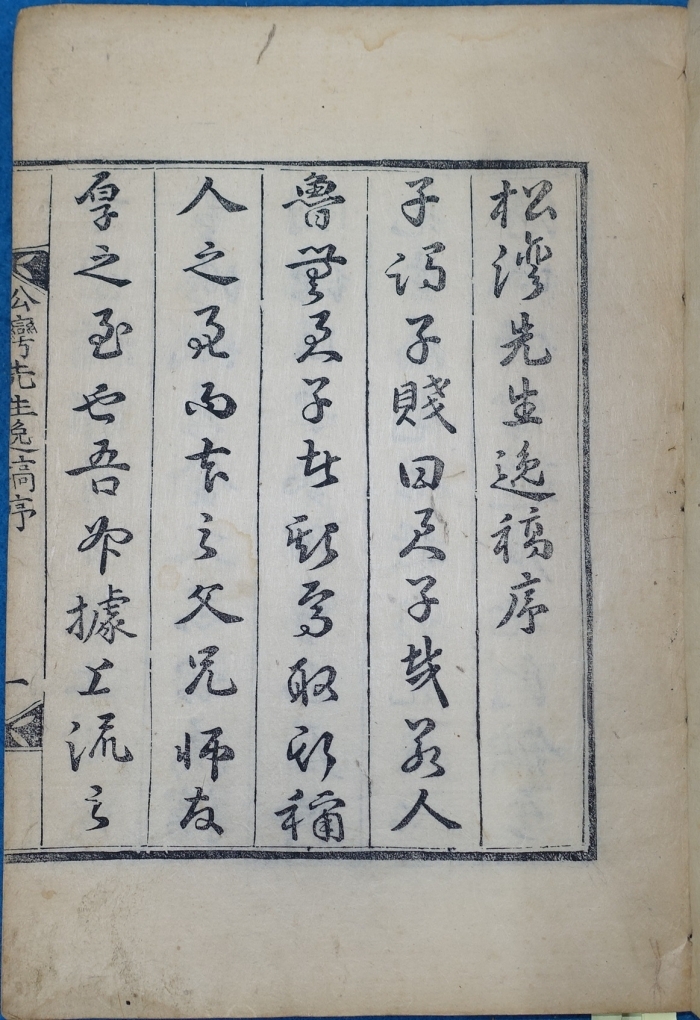 松灣先生逸稿序
子謂子賤曰君子哉若人
魯無君子者斯焉取斯稱
人之善而本之父兄師友
厚之至也吾據上流之
松灣先生逸稿序 一